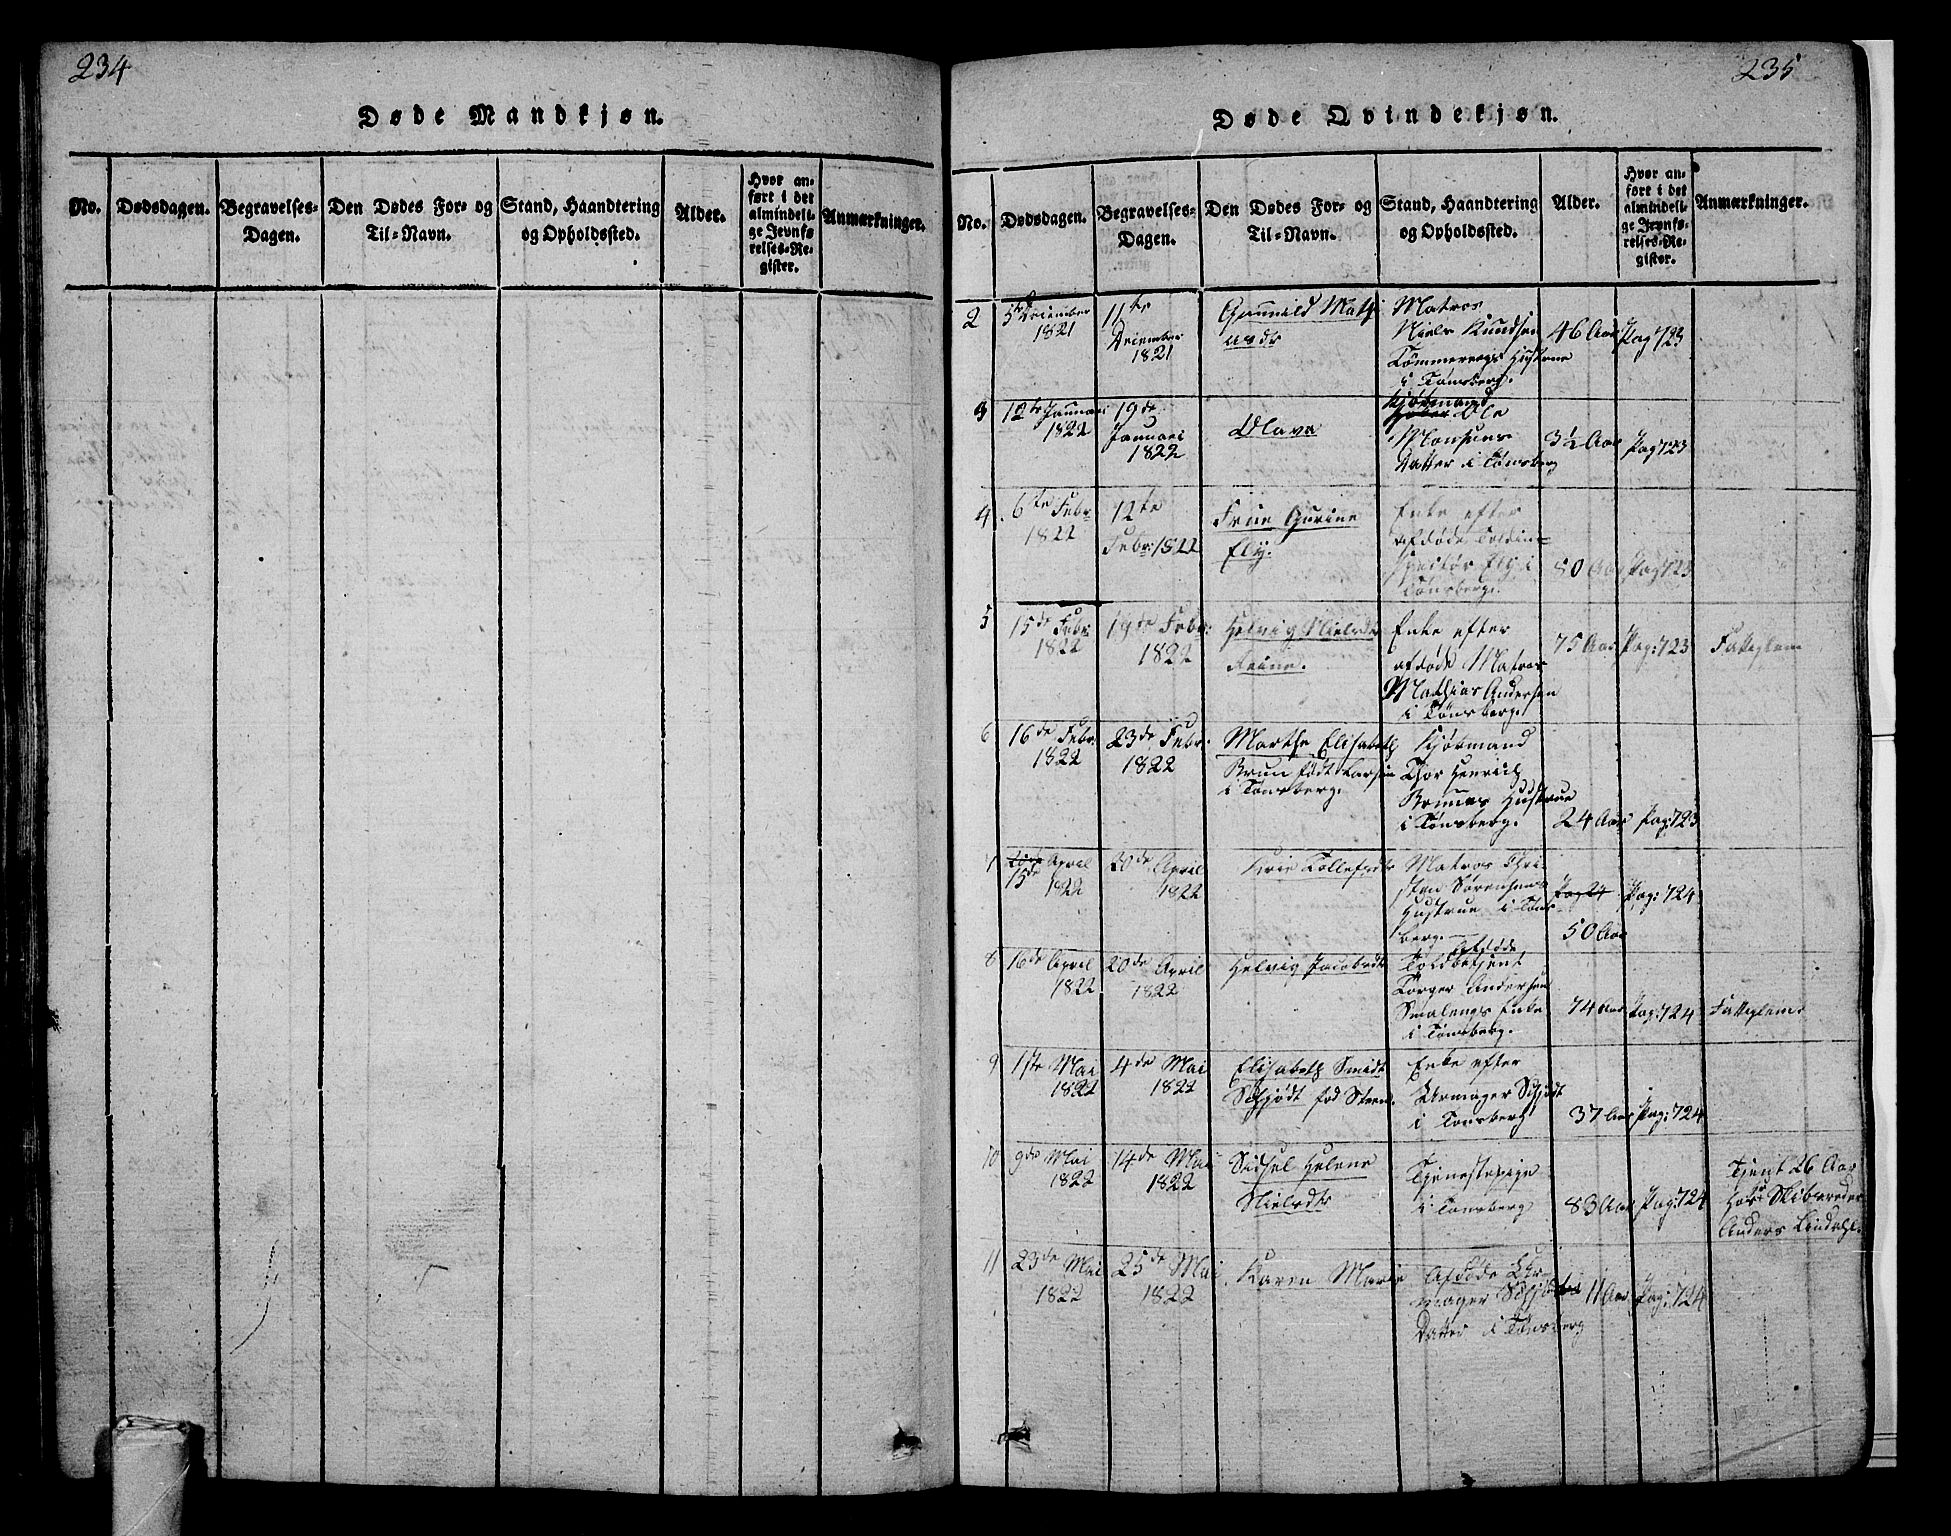 234
Døde Mandkjøn.
No.
Dødsdagen.
Begravelses-
Dagen.
Den Dødes For- og
Til-Navn.
Stand, Haandtering
og Opholdssted.
Alder.
Hvor an-
ført i det
almindeli-
ge Jevnfø-
relses-Re-
gister.
Anmærkninger.
235
Døde Qvindekjøn.
No.
Dødsdagen.
Begravelses-
Dagen.
Den Dødes For- og
Til-Navn.
Stand, Haandtering
og Opholdssted.
Alder.
Hvor an-
ført i det
almindeli-
ge Jevnfø-
relses-Re-
gister.
Anmærkninger.
2
5te December
1821
11te
December
1821
Gunnild Mathi
asdr
Matros
Niels Knudsen
Hustrue
i Tønsberg.
46 Aar
Pag 723
3
12te Januari
1822
19de
Januari
1822
Olava
Kjøbmand
Ole
Monsens
Datter i Tønsberg
3½ Aar
Pag 723
4
6te Febr
1822
12te
Febr: 1822
Frue Gurine
Ely.
Enke efter
afdøde Toldin=
spectør Ely i
Tønsberg.
80 Aar
Pag 723
5
15de Febr:
1822
19de Febr:
1822
Helvig Nielsdr
Enke efter
afdøde Matros
Mathias Andersen
i Tønsberg.
75 Aar
Pag: 723
Fattiglem
6
16de Febr:
1822
23de Febr:
1822
Marthe Elisabeth
Brun født Larsen
i Tønsberg.
Kjøbmand
Thor Henrich
Bruuns Hustrue
i Tønsberg.
24 Aar
Pag: 723
7
15de April
1822
20de April
1822
Tollefsdr
Matros Chri
sten Sørensens
Hustrue i Tøns
berg.
Pag 24
50 Aar
Pag: 724
8
16de April
1822
20de April
1822
Helvig Jacobsdr
Afdøde
Toldbetjent
Torger Andersen
Smalengs Enke
i Tønsberg.
74 Aar
Pag: 724
Fattiglem
9
1ste Mai
1822
4de Mai
1822
Elisabeth Smidt
Schjødt fød Steen.
Enke efter
Urmager Schjødt
i Tønsberg
37 Aar
Pag: 724
10
9de Mai
1822
14de Mai
1822
Sidsel Helene
Nielsdr
Tjenestepige
i Tønsberg
83 Aar
Pag: 724
Tjent 26 Aar
Hos Skibsreder
Anders Lindahl.
11
23de Mai
1822
25de Mai
1822
Karen Marie
Afdøde Ur-
mager
Datter i Tønsberg
11 Aar
Pag: 724